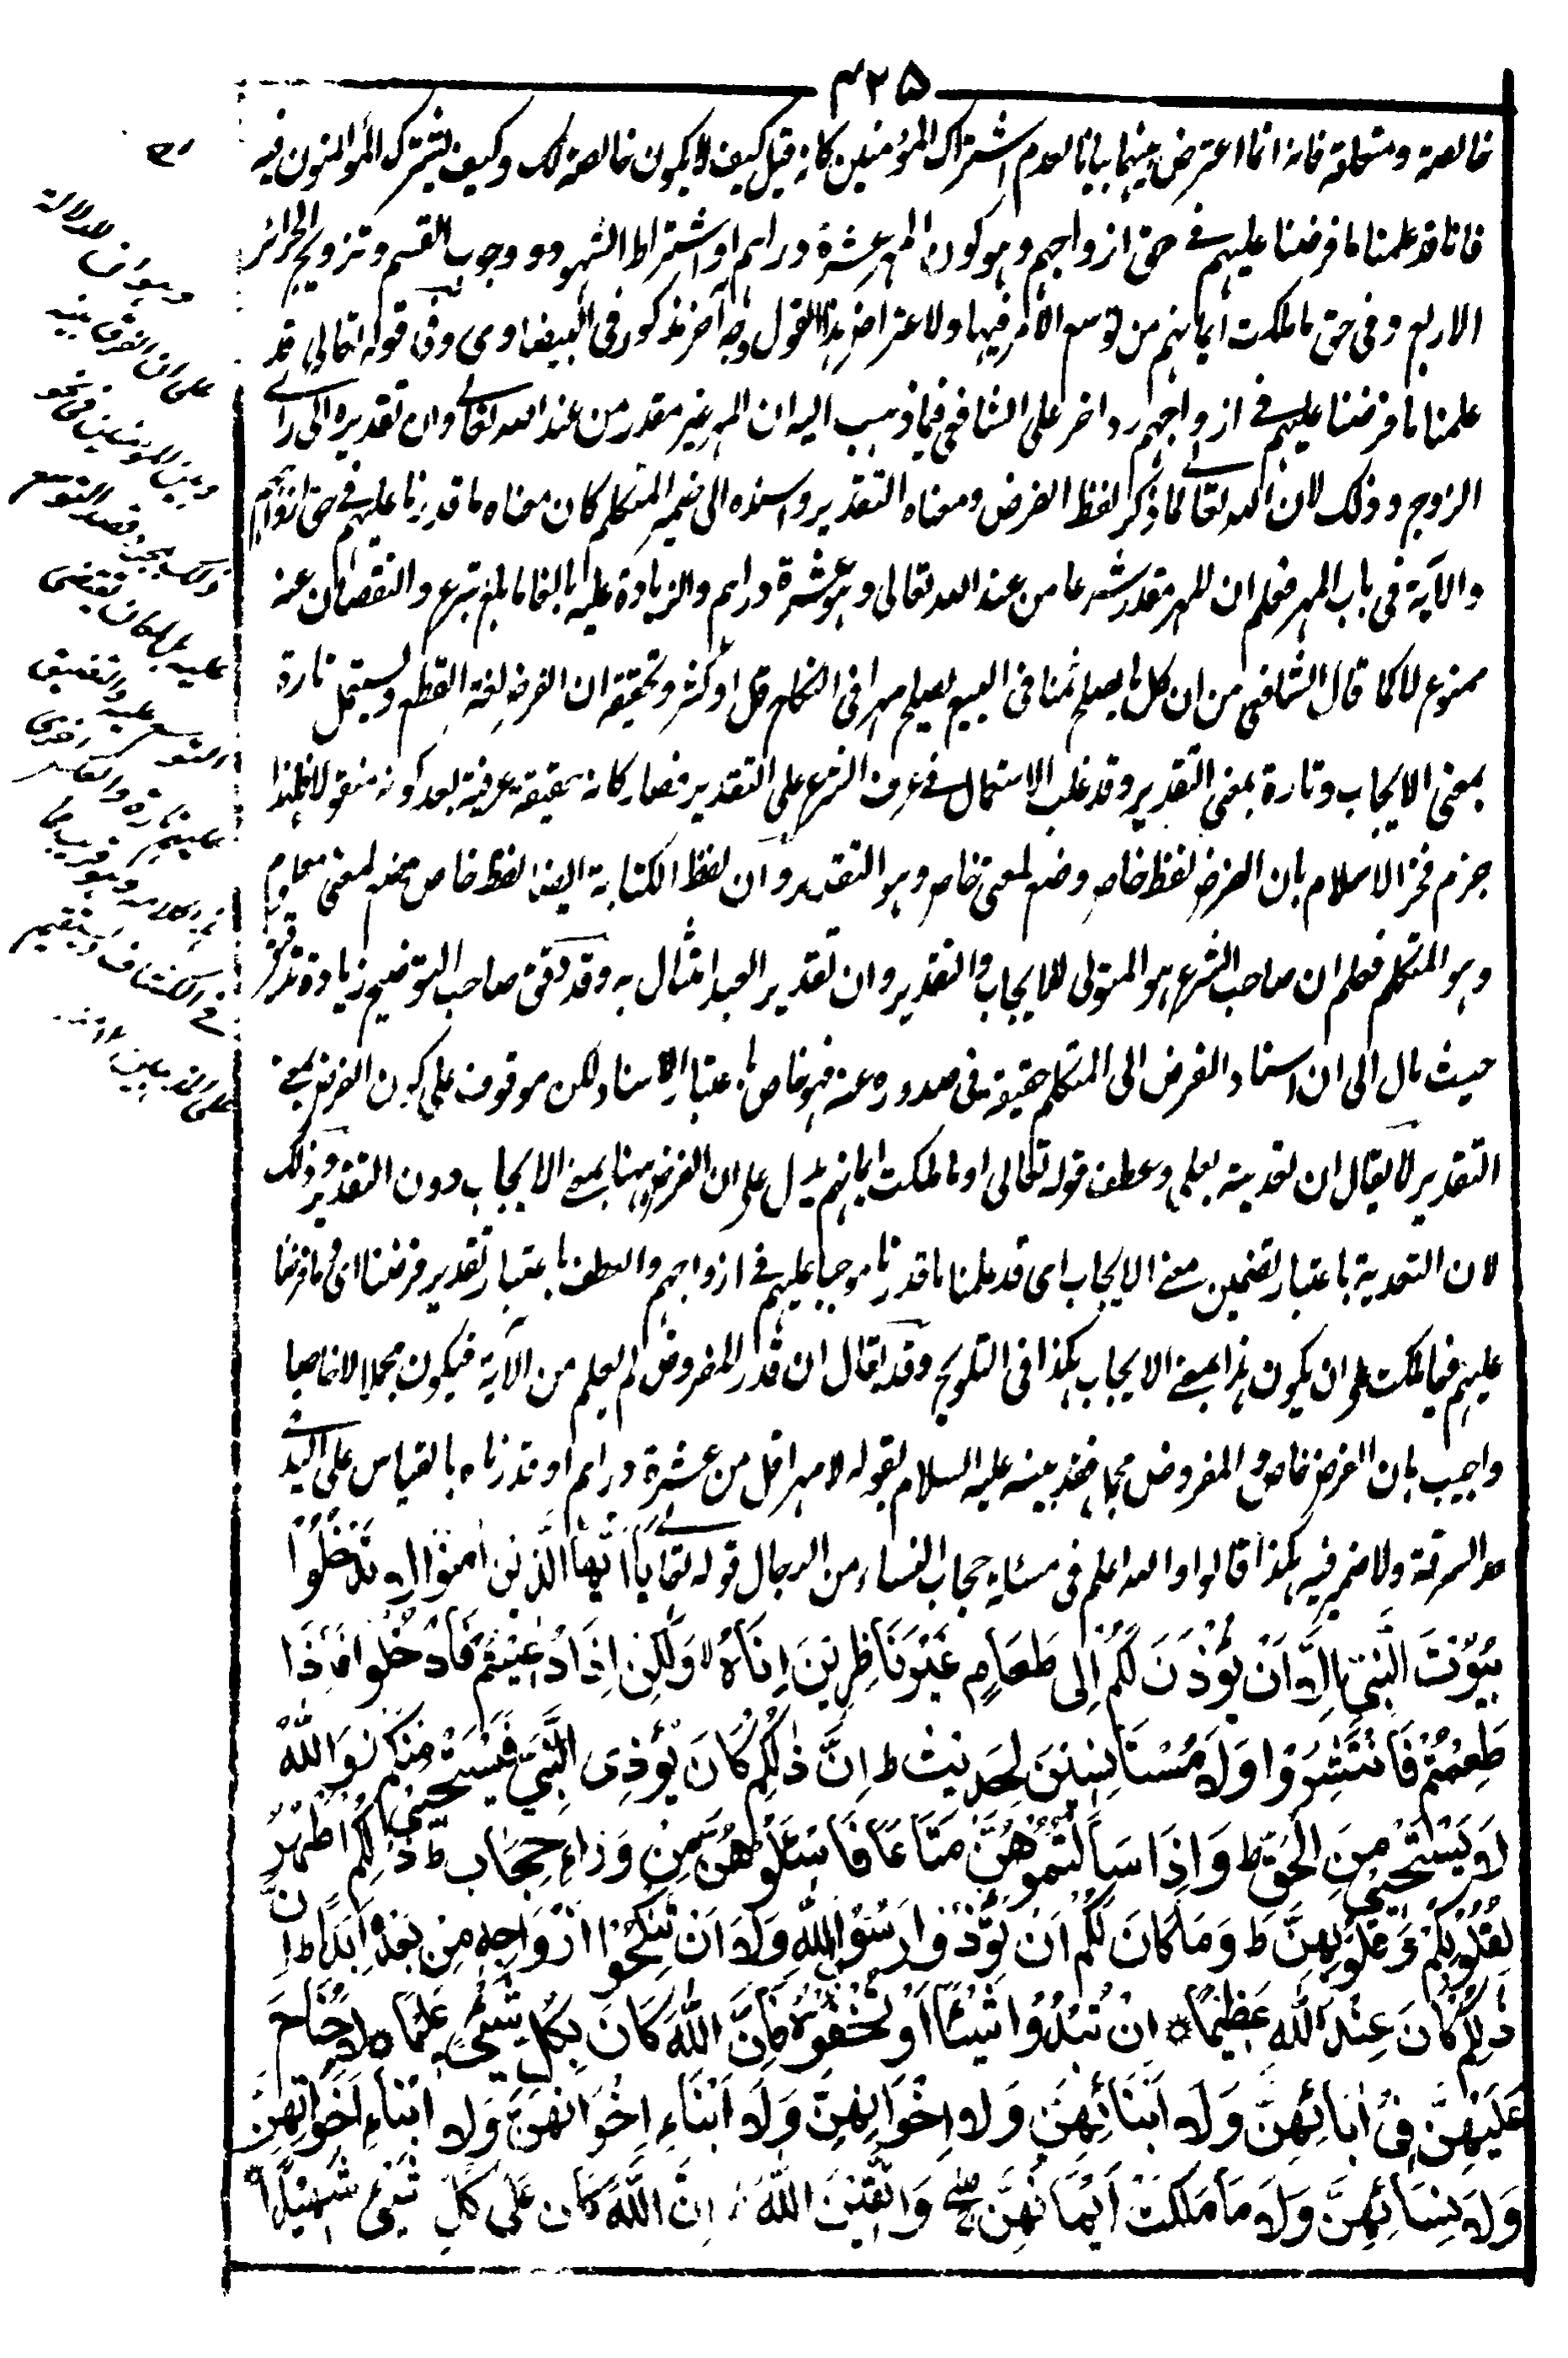 ۴۲۵
خالصة ومتعلقة فانه انما اعترض بينهما بيانا لعدم اشتراك المؤمنين كانه قيل كيف لا يكون خالصة لك وكيف يشترك المؤمنون فيه
فانا قد علمنا ما فرضنا عليهم في حق ازواجهم وهو كون المهر عشرة دراهم او اشتراط الشهود ووجوب القسم وتزويج الحرائر
الاربع وفي حق ما ملكت ايمانهم من توسع الامر فيها ولاعتراض هذا القول وجه آخر مذكور في البيضاوي وفي قوله تعالى قد
علمنا ما فرضنا عليهم في ازواجهم رد اخر على الشافعي فيما ذهب اليه ان المهر غير مقدر من عند الله تعالى وان تقديره الى راي
الزوج وذلك لان الله تعالى لما ذكر لفظ الفرض ومعناه التقدير واسنده الى ضمير المتكلم كان معناه ما قدرنا عليهم في حق ازواجهم
والآية في باب المهر فعلم ان للمهر مقدر شرعا من عند الله تعالى وهو عشرة دراهم والزيادة عليه بالغا ما بلغ تبرع والنقصان عنه
ممنوع لا كما قال الشافعي من ان كل ما يصلح ثمنا في البيع يصلح مهرا في النكاح قل او كثر وتحقيقه ان الفرض لغة القطع ويستعمل تارة
بمعنى الايجاب وتارة بمعنى التقدير وقد غلب الاستعمال في عرف الشرع على التقدير فصار كانه حقيقة عرفية بعد كونه منقولا فلهذا
جزم فخر الاسلام بان الفرض لفظ خاص وضع لمعنى خاص وهو التقدير وان لفظ الكناية ايضا لفظ خاص وضع لمعنى معلوم
وهو المتكلم فعلم ان صاحب الشرع هو المتولى للايجاب والتقدير وان تقدير العبد امتثال به وقد دقق صاحب التوضيح زيادة تدقيق
حيث مال الى ان اسناد الفرض الى المتكلم حقيقة في صدوره عنه فهو خاص باعتبار الاسناد لكن موقوف على كون الفرض بمعنى
التقدير لا يقال ان تعديته بعلى وعطف قوله تعالى او ما ملكت ايمانهم يدل على ان الفرض ههنا بمعنى الايجاب دون التقدير وذلك
لان التعدية باعتبار تضمين معنى الايجاب اى قد علمنا ما قدرنا موجبا عليهم في ازواجهم والعطف باعتبار تقدير فرضنا اى وما فرضنا
عليهم فيما ملكت على ان يكون هذا بمعنى الايجاب هكذا في التلويح وقد يقال ان قدر المفروض لم يعلم من الآية فيكون مجملا لا خاصا
واجيب بان الفرض خاص والمفروض مجمل فقد بينه عليه السلام بقوله لا مهر اقل من عشرة دراهم او قدرناه بالقياس على اليد في
حد السرقة ولا ضير فيه هكذا قالوا والله اعلم في مسئلة حجاب النساء من الرجال قوله تعالى يَاَ اَيُّهَا الَّذِيْنَ اٰمَنُوْا لَا تَدْخُلُوْا
بُيُوْتَ النَّبِيِّ اِلَّا اَنْ يُّؤْذَنَ لَكُمْ اِلٰى طَعَامٍ غَيْرَ نَاظِرِيْنَ اِنَاهُ لا وَلٰكِنْ اِذَا دُعِيْتُمْ فَادْخُلُوْا فَاِذَا
طَعِمْتُمْ فَانْتَشِرُوْا وَلَا مُسْتَأْنِسِيْنَ لِحَدِيْثٍ ط اِنَّ ذٰلِكُمْ كَانَ يُؤْذِى النَّبِيَّ فَيَسْتَحْيِيْ مِنْكُمْ ز وَاللّٰهُ
لَا يَسْتَحْيِيْ مِنَ الْحَقِّ ط وَاِذَا سَأَلْتُمُوْهُنَّ مَتَاعًا فَاسْئَلُوْهُنَّ مِنْ وَّرَآءِ حِجَابٍ ط ذٰلِكُمْ اَطْهَرُ
لِقُلُوْبِكُمْ وَقُلُوْبِهِنَّ ط وَمَا كَانَ لَكُمْ اَنْ تُؤْذُوْا رَسُوْلَ اللّٰهِ وَلَا اَنْ تَنْكِحُوْا اَزْوَاجَهُ مِنْ بَعْدِهٖ اَبَدًا ط اِنَّ
ذٰلِكُمْ كَانَ عِنْدَ اللّٰهِ عَظِيْمًا ۞ اِنْ تُبْدُوْا شَيْئًا اَوْ تُخْفُوْهُ فَاِنَّ اللّٰهَ كَانَ بِكُلِّ شَيْءٍ عَلِيْمًا ۞ لَا جُنَاحَ
عَلَيْهِنَّ فِيْ اٰبَائِهِنَّ وَلَا اَبْنَائِهِنَّ وَلَا اِخْوَانِهِنَّ وَلَا اَبْنَاءِ اِخْوَانِهِنَّ وَلَا اَبْنَاءِ اَخَوَاتِهِنَّ
وَلَا نِسَائِهِنَّ وَلَا مَا مَلَكَتْ اَيْمَانُهُنَّ ج وَاتَّقِيْنَ اللّٰهَ ط اِنَّ اللّٰهَ كَانَ عَلٰى كُلِّ شَيْءٍ شَهِيْدًا ۞
وهو ان الدلالة
على ان الفرق بينه
وبين المؤمنين في نحو
ذلك بحيث قصد التوسع
عليه لمعان تقتضى
التوسع عليه والتضيق
عليهم تارة والعكس اخرى